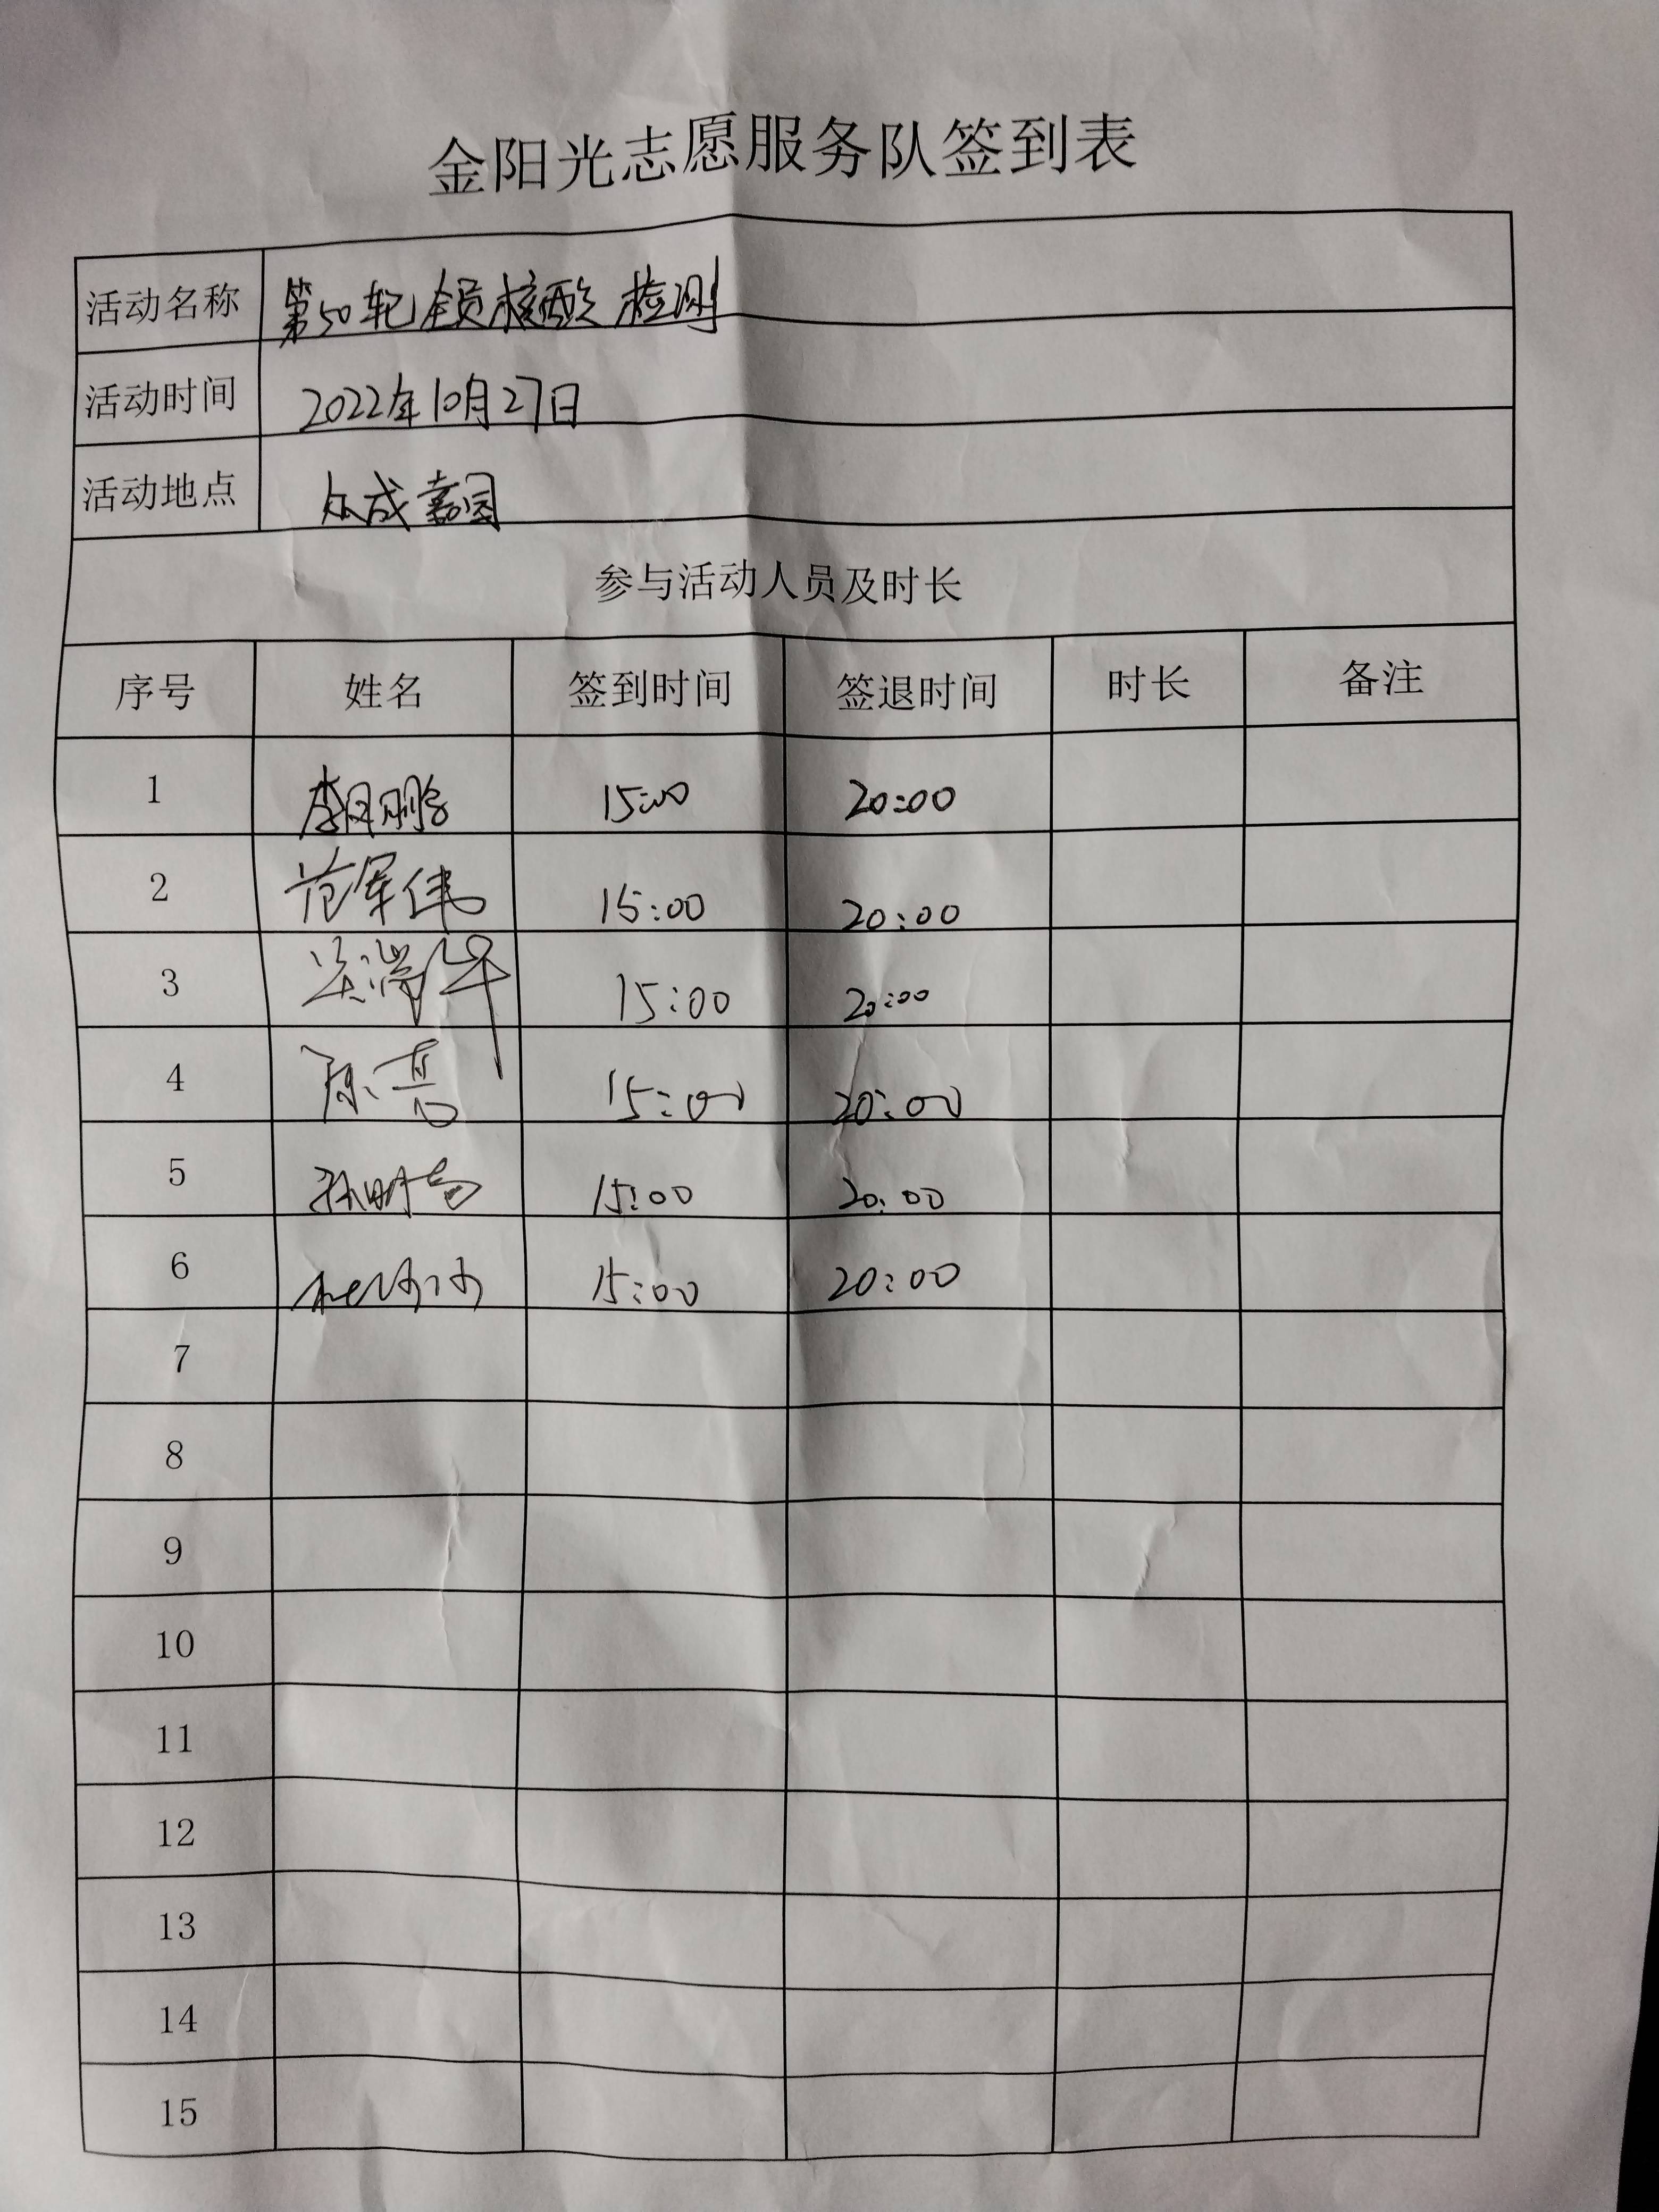 金阳光志愿服务队签到表
活动名称 第50轮全员核酸检测
活动时间 2022年10月27日
活动地点 众成嘉园
参与活动人员及时长
序号 姓名 签到时间 签退时间 时长 备注
1 李月鹏 15:00 20:00
2 范军伟 15:00 20:00
3 15:00 20:00
4 15:00 20:00
5 15:00 20:00
6 15:00 20:00
7
8
9
10
11
12
13
14
15